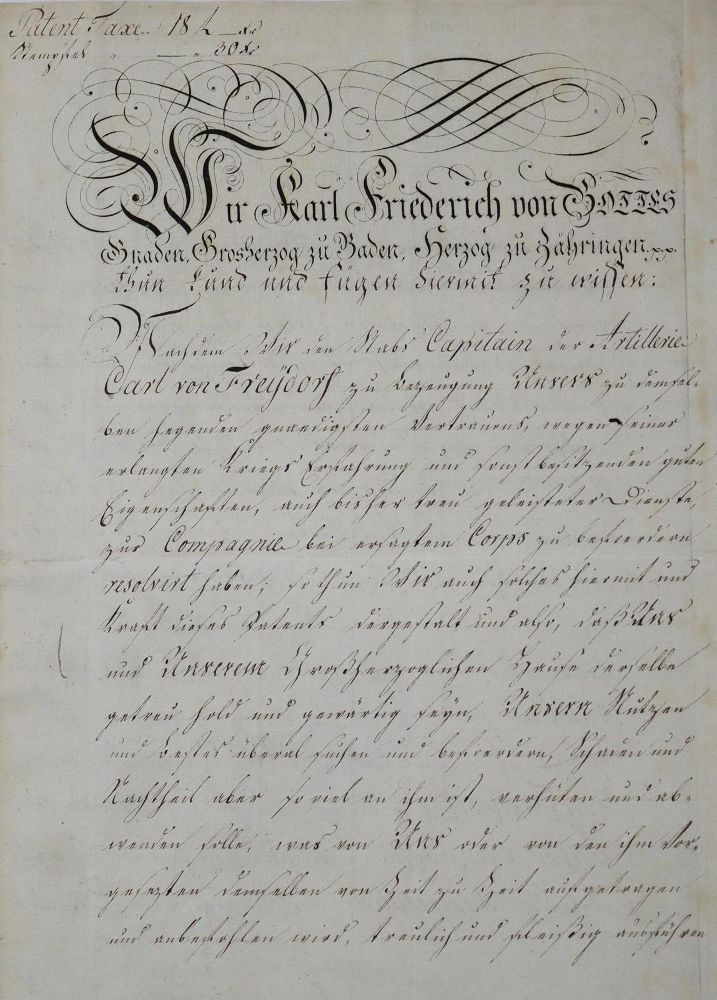 Patent Taxe 18 f — Kr
Stempfel " — " 30 Kr
Wir Karl Friederich von GOTTES
Gnaden, Grosherzog zu Baden, Herzog zu Zähringen pp.
thun kund und fügen hiermit zu wissen:
Nachdem Wir den Stabs Capitain der Artillerie
Carl von Freydorf zu Bezeugung Unsers zu demsel-
ben hegenden gnaedigsten Vertrauens, wegen seiner
erlangten Kriegs Erfahrung und sonst besitzenden guten
Eigenschaften, auch bisher treu geleisteter Dienste,
zur Compagnie bei ersagtem Corps zu befoerdern
resolvirt haben; so thun Wir auch solches hiermit und
Kraft dieses Patents dergestalt und also, daß Uns
und Unserem Großherzoglichen Hause derselbe
getreu hold und gewärtig seyn, Unsern Nutzen
und Bestes überal suchen und befoerdern, Schaden und
Nachtheil aber so viel an ihm ist, verhüten und ab-
wenden solle; was von Uns oder von den ihm Vor-
gesezten demselben von Zeit zu Zeit aufgetragen
und anbefohlen wird, treulich und fleißig ausführen